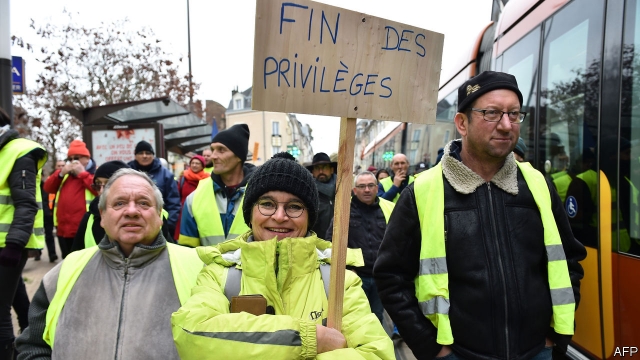 FIN DES
PRIVILÈGES
AFP